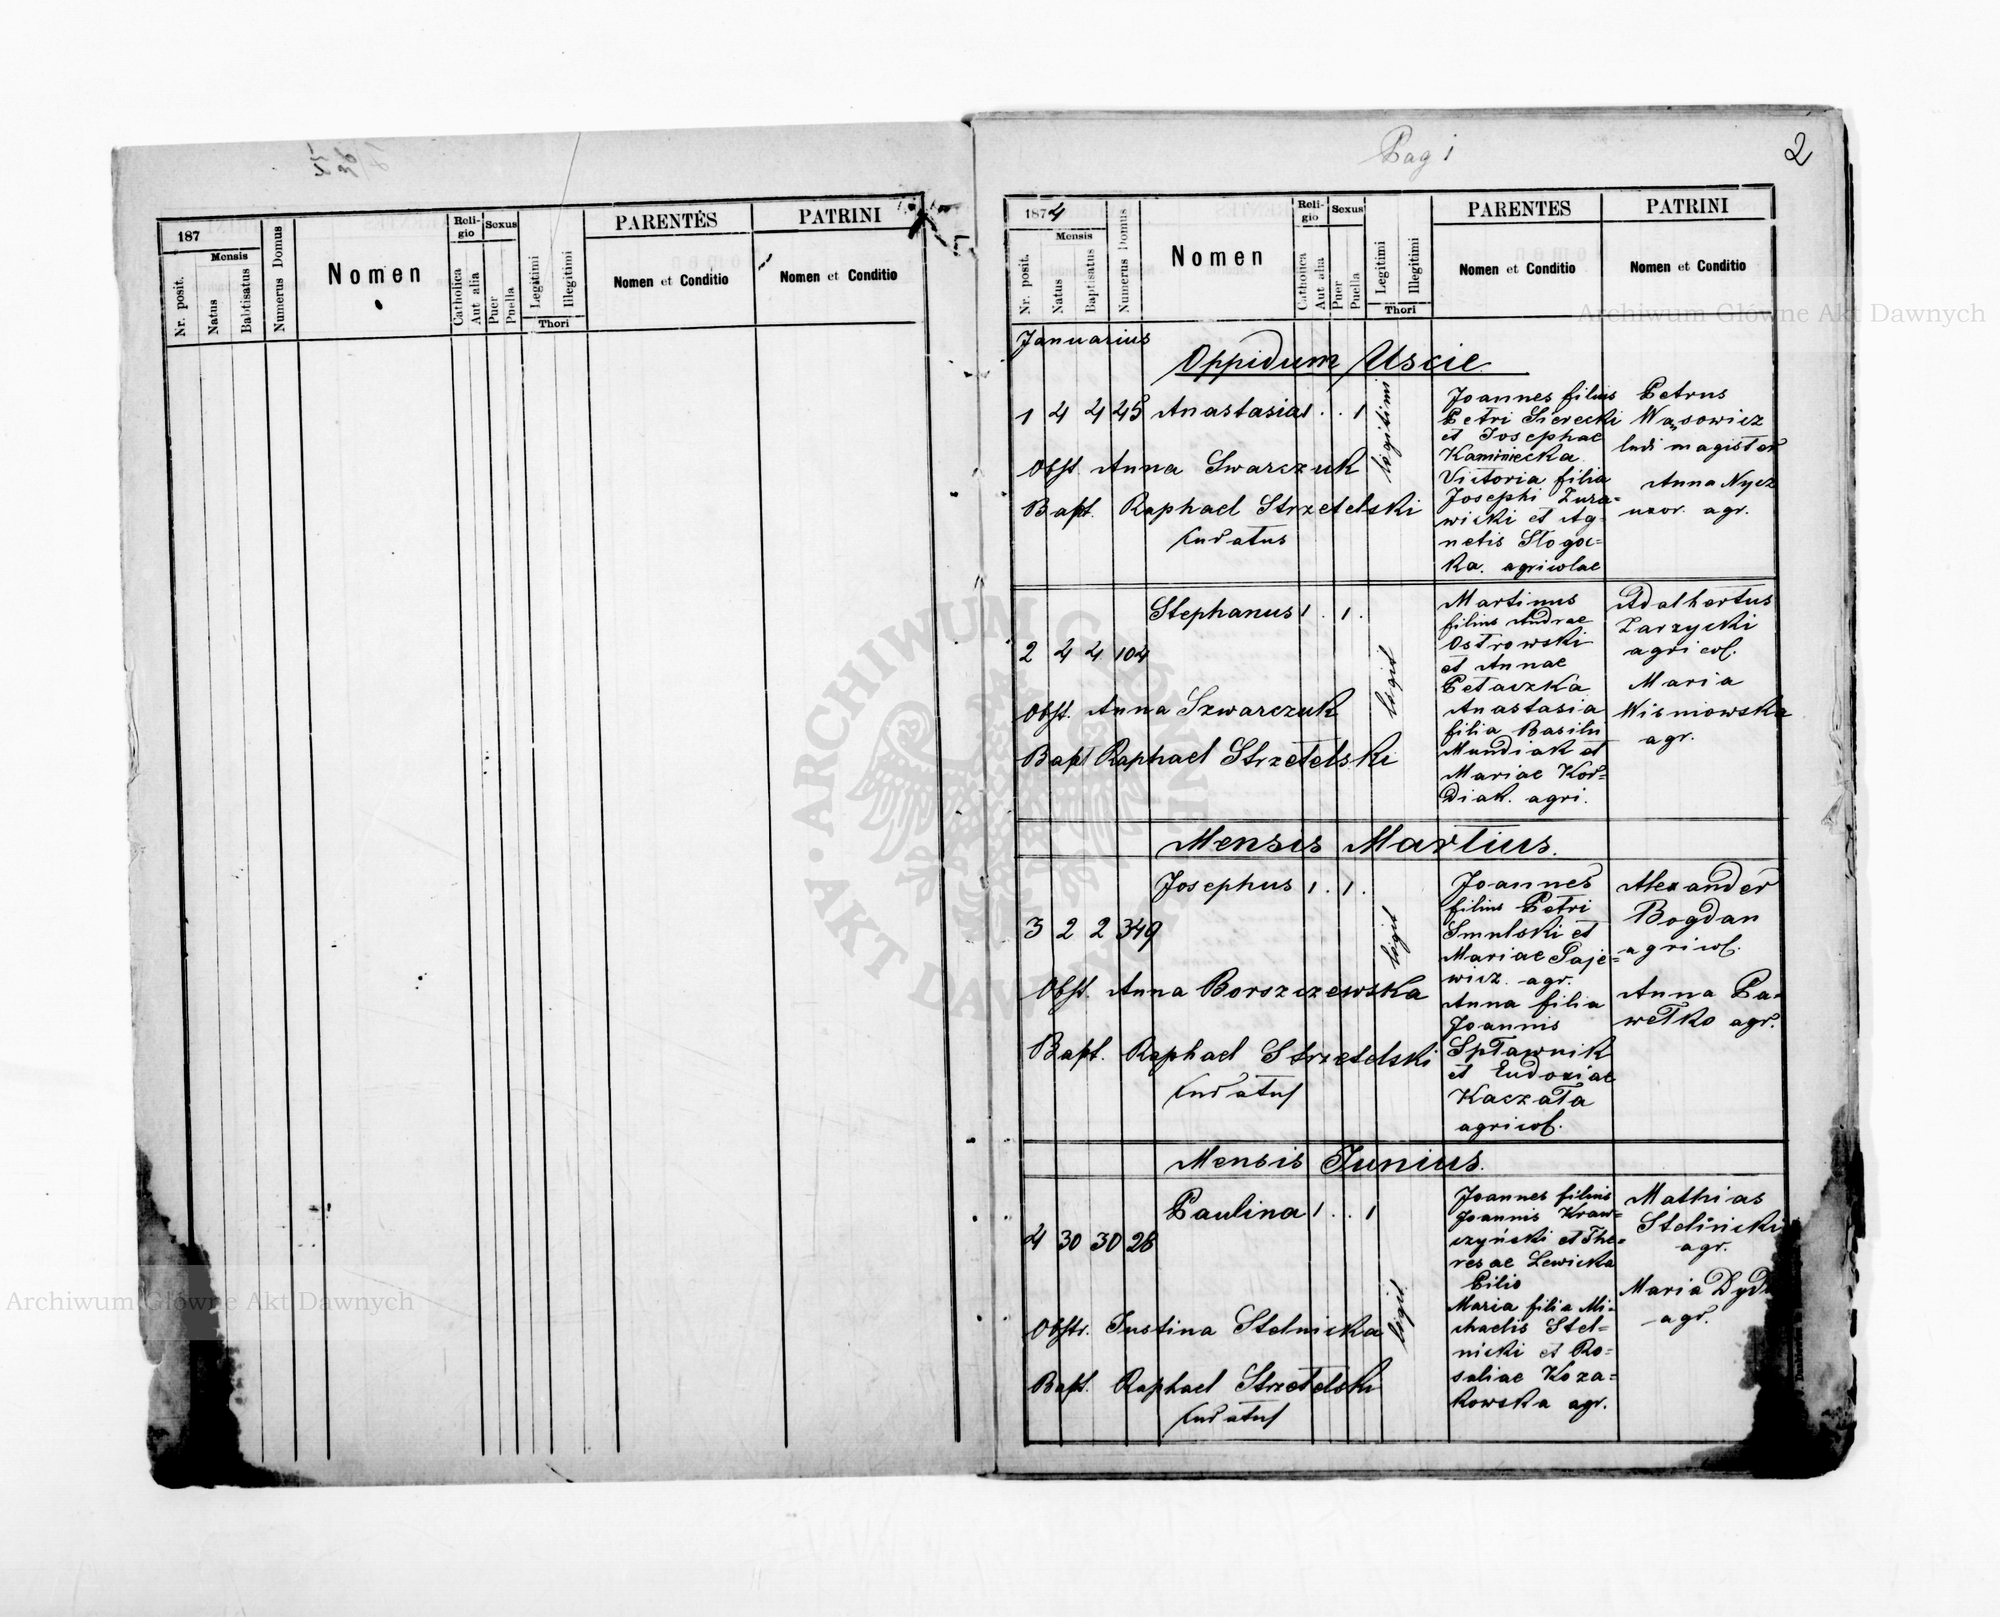 187
Mensis
Nr. posit.
Natus
Babtisatus
Numerus Domus
Nomen
Religio
Catholica
Aut alia
Sexus
Puer
Puella
Legitimi
Illegitimi
Thori
PARENTES
Nomen et Conditio
PATRINI
Nomen et Conditio
Pag 1
2
1874
Mensis
Nr. posit.
Natus
Baptisatus
Numerus Domus
Nomen
Religio
Catholica
Aut alia
Sexus
Puer
Puella
Legitimi
Illegitimi
Thori
PARENTES
Nomen et Conditio
PATRINI
Nomen et Conditio
Januarius
Oppidum Uscie
1 4 4 45 Anastasia 1 . . 1
legitimi
Obst. Anna Swarczuk
Bapt. Raphael Strzetelski
Curatus
Joannes filius
Petri Sierecki
et Josephae
Kaminiecka
Victoria filia
Josephi Zura=
wicki et Ag=
netis Stogoc=
ka. agricolae
Petrus
Wąsowicz
ludi magister
Anna Nycz
uxor. agr.
Stephanus 1 . 1 .
2 4 4 104
legit
Obst. Anna Szwarczuk
Bapt Raphael Strzetelski
Martinus
filius Andrae
Ostrowski
et Annae
Petaszka
Anastasia
filia Basilii
Mundiak et
Mariae Kor=
diak. agri.
Adalbertus
Zarzycki
agricol.
Maria
Wisniowska
agr.
Mensis Martius.
Josephus 1 . 1 .
3 2 2 349
legit
Obst. Anna Borszczewska
Bapt. Raphael Strzetelski
Curatus
Joannes
filius Petri
Smulski et
Mariae Paje=
wicz. agr.
Anna filia
Joannis
Spławnik
et Eudoxiae
Kaczała
agricol.
Alexander
Bogdan
agricol.
Anna Pa=
wełko agr.
Mensis Junius.
Paulina 1 . . 1
4 30 30 28
legit
Obstr. Justina Stelnicka
Bapt. Raphael Strzetelski
Curatus
Joannes filius
Joannis Kraw=
czyński et The=
resae Lewicka
Maria filia Mi=
chaelis Stel=
nicki et Ro=
saliae Koza=
kowska agr.
Mathias
Stelnicki
agr.
Maria
agr.
Archiwum Główne Akt Dawnych
Archiwum Główne Akt Dawnych
ARCHIWUM GŁÓWNE AKT DAWNYCH